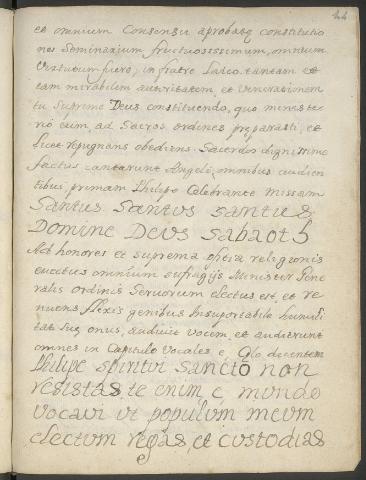 44
et omnium Consensu aprobatq constitutio
nes Seminarium fructuosissimum, omnium
Virtutum fuere, in fratre Laico tantam et
tam mirabilem autoritatem, et Veneratiomen
tu Supreme Deus constituendo, quo ministe
rio eum, ad Sacros ordines preparasti, et
licet repugnans obediens. Sacerdos dignissime
factus cantarunt Angeli, omnibus audien
tibus, primam Philipo Celebrante Missam
Santus Santus Santus
Domine Deus Sabaoth
Ad honores et suprema officia religionis
euectus omnium sufragijs Minister Gene
ralis ordinis Seruorum electus est, et re
nuens flexis genibus Insuportabile humili
tati Sue onus, audiuit vocem, et audierunt
omnes in Capitulo Vocales e Celo dicentem
Philipe spiritui sancto non
resistas te enim e mundo
vocavi ut populum meum
electum regas, et custodias